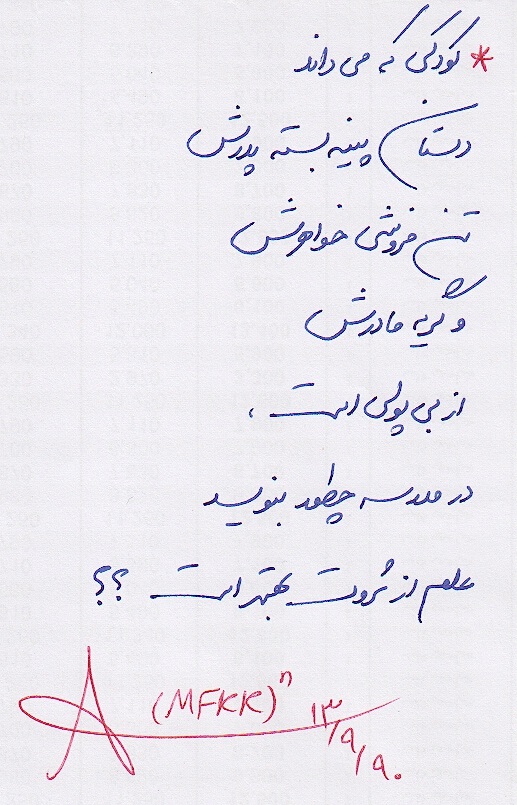 * کودکی که می داند
دستان پینه بسته پدرش
تن فروشی خواهرش
و گریه مادرش
از بی پولی است ،
در مدرسه چطور بنویسد
علم از ثروت بهتر است ؟؟
(MFKK)ⁿ ۱۳/۹/۹۰